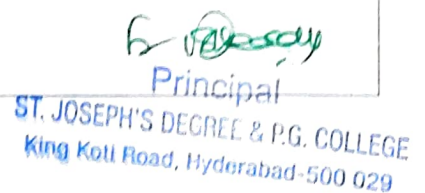 Principal
ST. JOSEPH'S DEGREE & P.G. COLLEGE
King Koti Road, Hyderabad-500 029